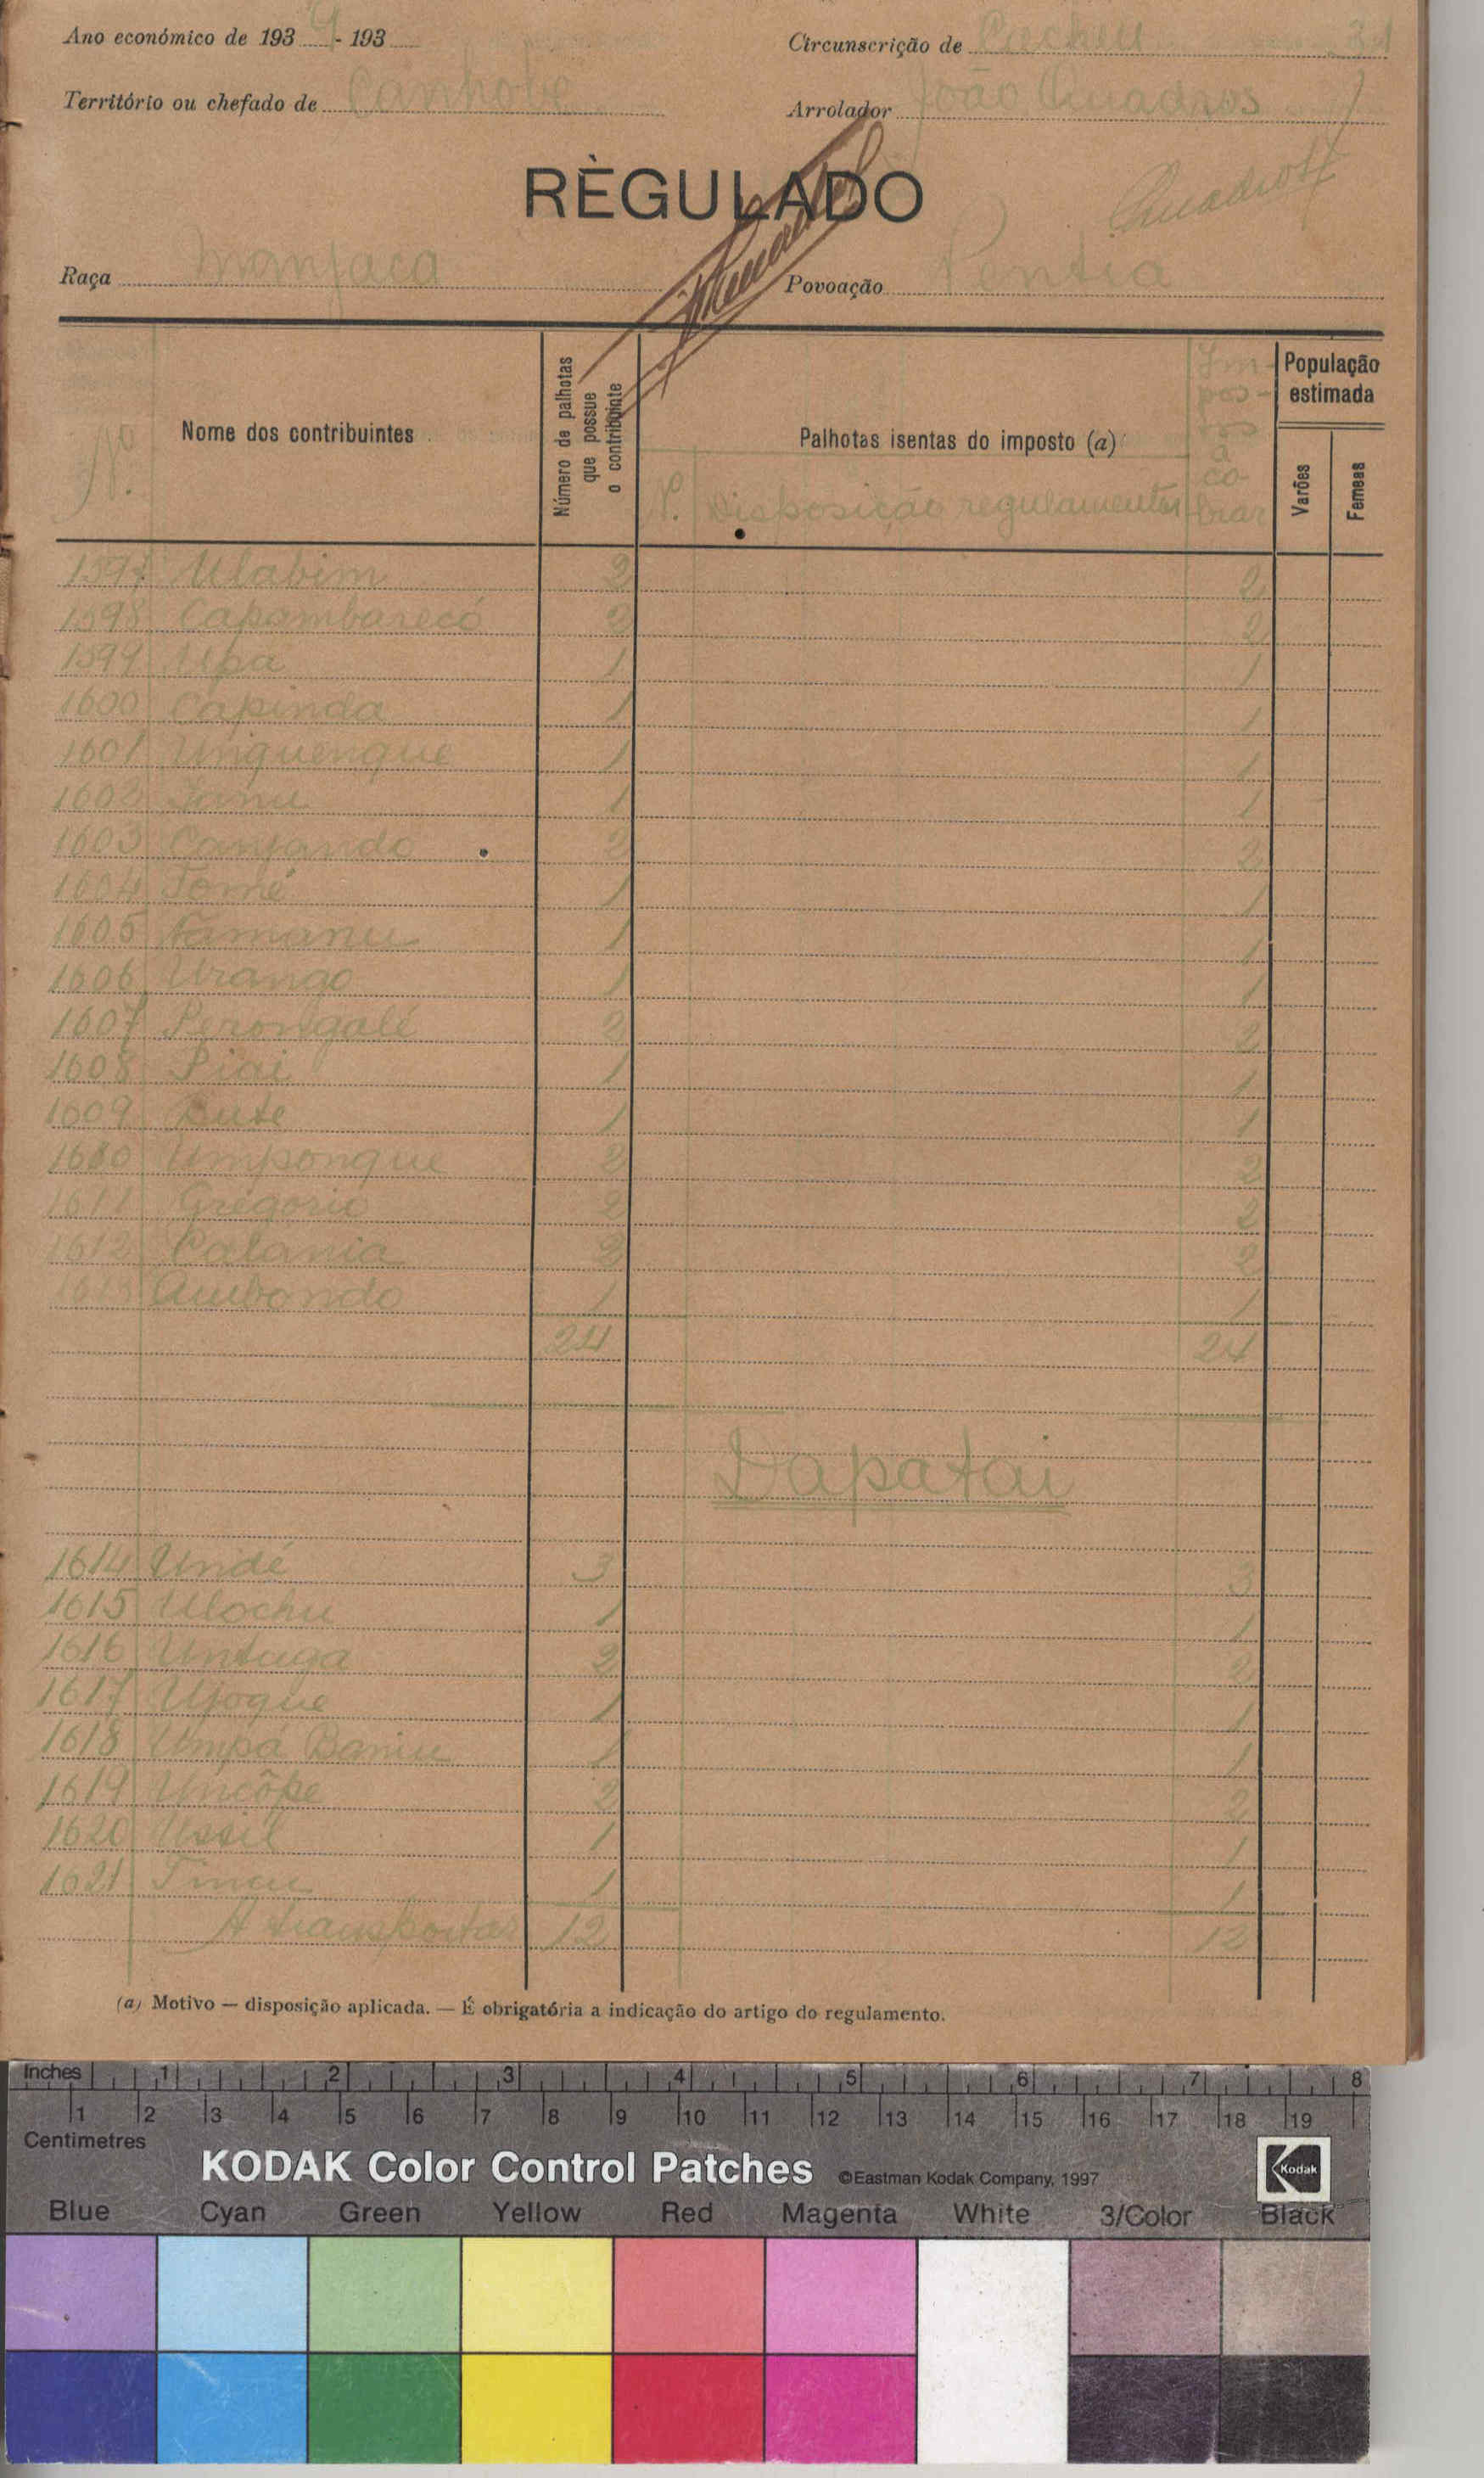 Ano económico de 1939 - 193
Circunscrição de Cacheu 31
Território ou chefado de Canhobe
Arrolador João Quadros
RÈGULADO
Quadros
Raça Manjaca
Povoação Pentia
Nº.
Nome dos contribuintes
Número de palhotas que possue o contribuinte
Palhotas isentas do imposto (a)
Nº. Disposição regulamentar
Imposto a cobrar
População estimada
Varões
Femeas
1597 Ulabim 2 2
1598 Capambarecó 2 2
1599 Upa 1 1
1600 Capinda 1 1
1601 Unguengue 1 1
1602 1 1
1603 Canjando 2 2
1604 Tomé 1 1
1605 Namanu 1 1
1606 Urango 1 1
1607 Perongalé 2 2
1608 Piai 1 1
1609 1 1
1610 Umpongue 2 2
1611 Gregorio 2 2
1612 Calania 2 2
1613 Aubondo 1 1
24 24
Dapatai
1614 Undé 3 3
1615 Ulochu 1 1
1616 Untuga 2 2
1617 Ujoque 1 1
1618 Umpá Baniu 1 1
1619 Uncôpe 2 2
1620 Ussil 1 1
1621 1 1
A transportar 12 12
(a) Motivo — disposição aplicada. — É obrigatória a indicação do artigo do regulamento.
Inches 1 2 3 4 5 6 7 8
1 2 3 4 5 6 7 8 9 10 11 12 13 14 15 16 17 18 19
Centimetres
KODAK Color Control Patches ©Eastman Kodak Company, 1997 Kodak
Blue Cyan Green Yellow Red Magenta White 3/Color Black